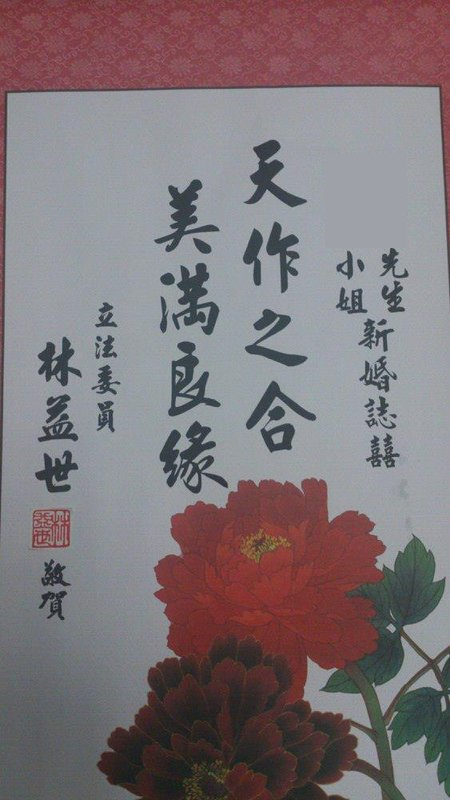 先生
小姐
新婚誌囍
天作之合
美滿良緣
立法委員
林益世
林益世
敬賀